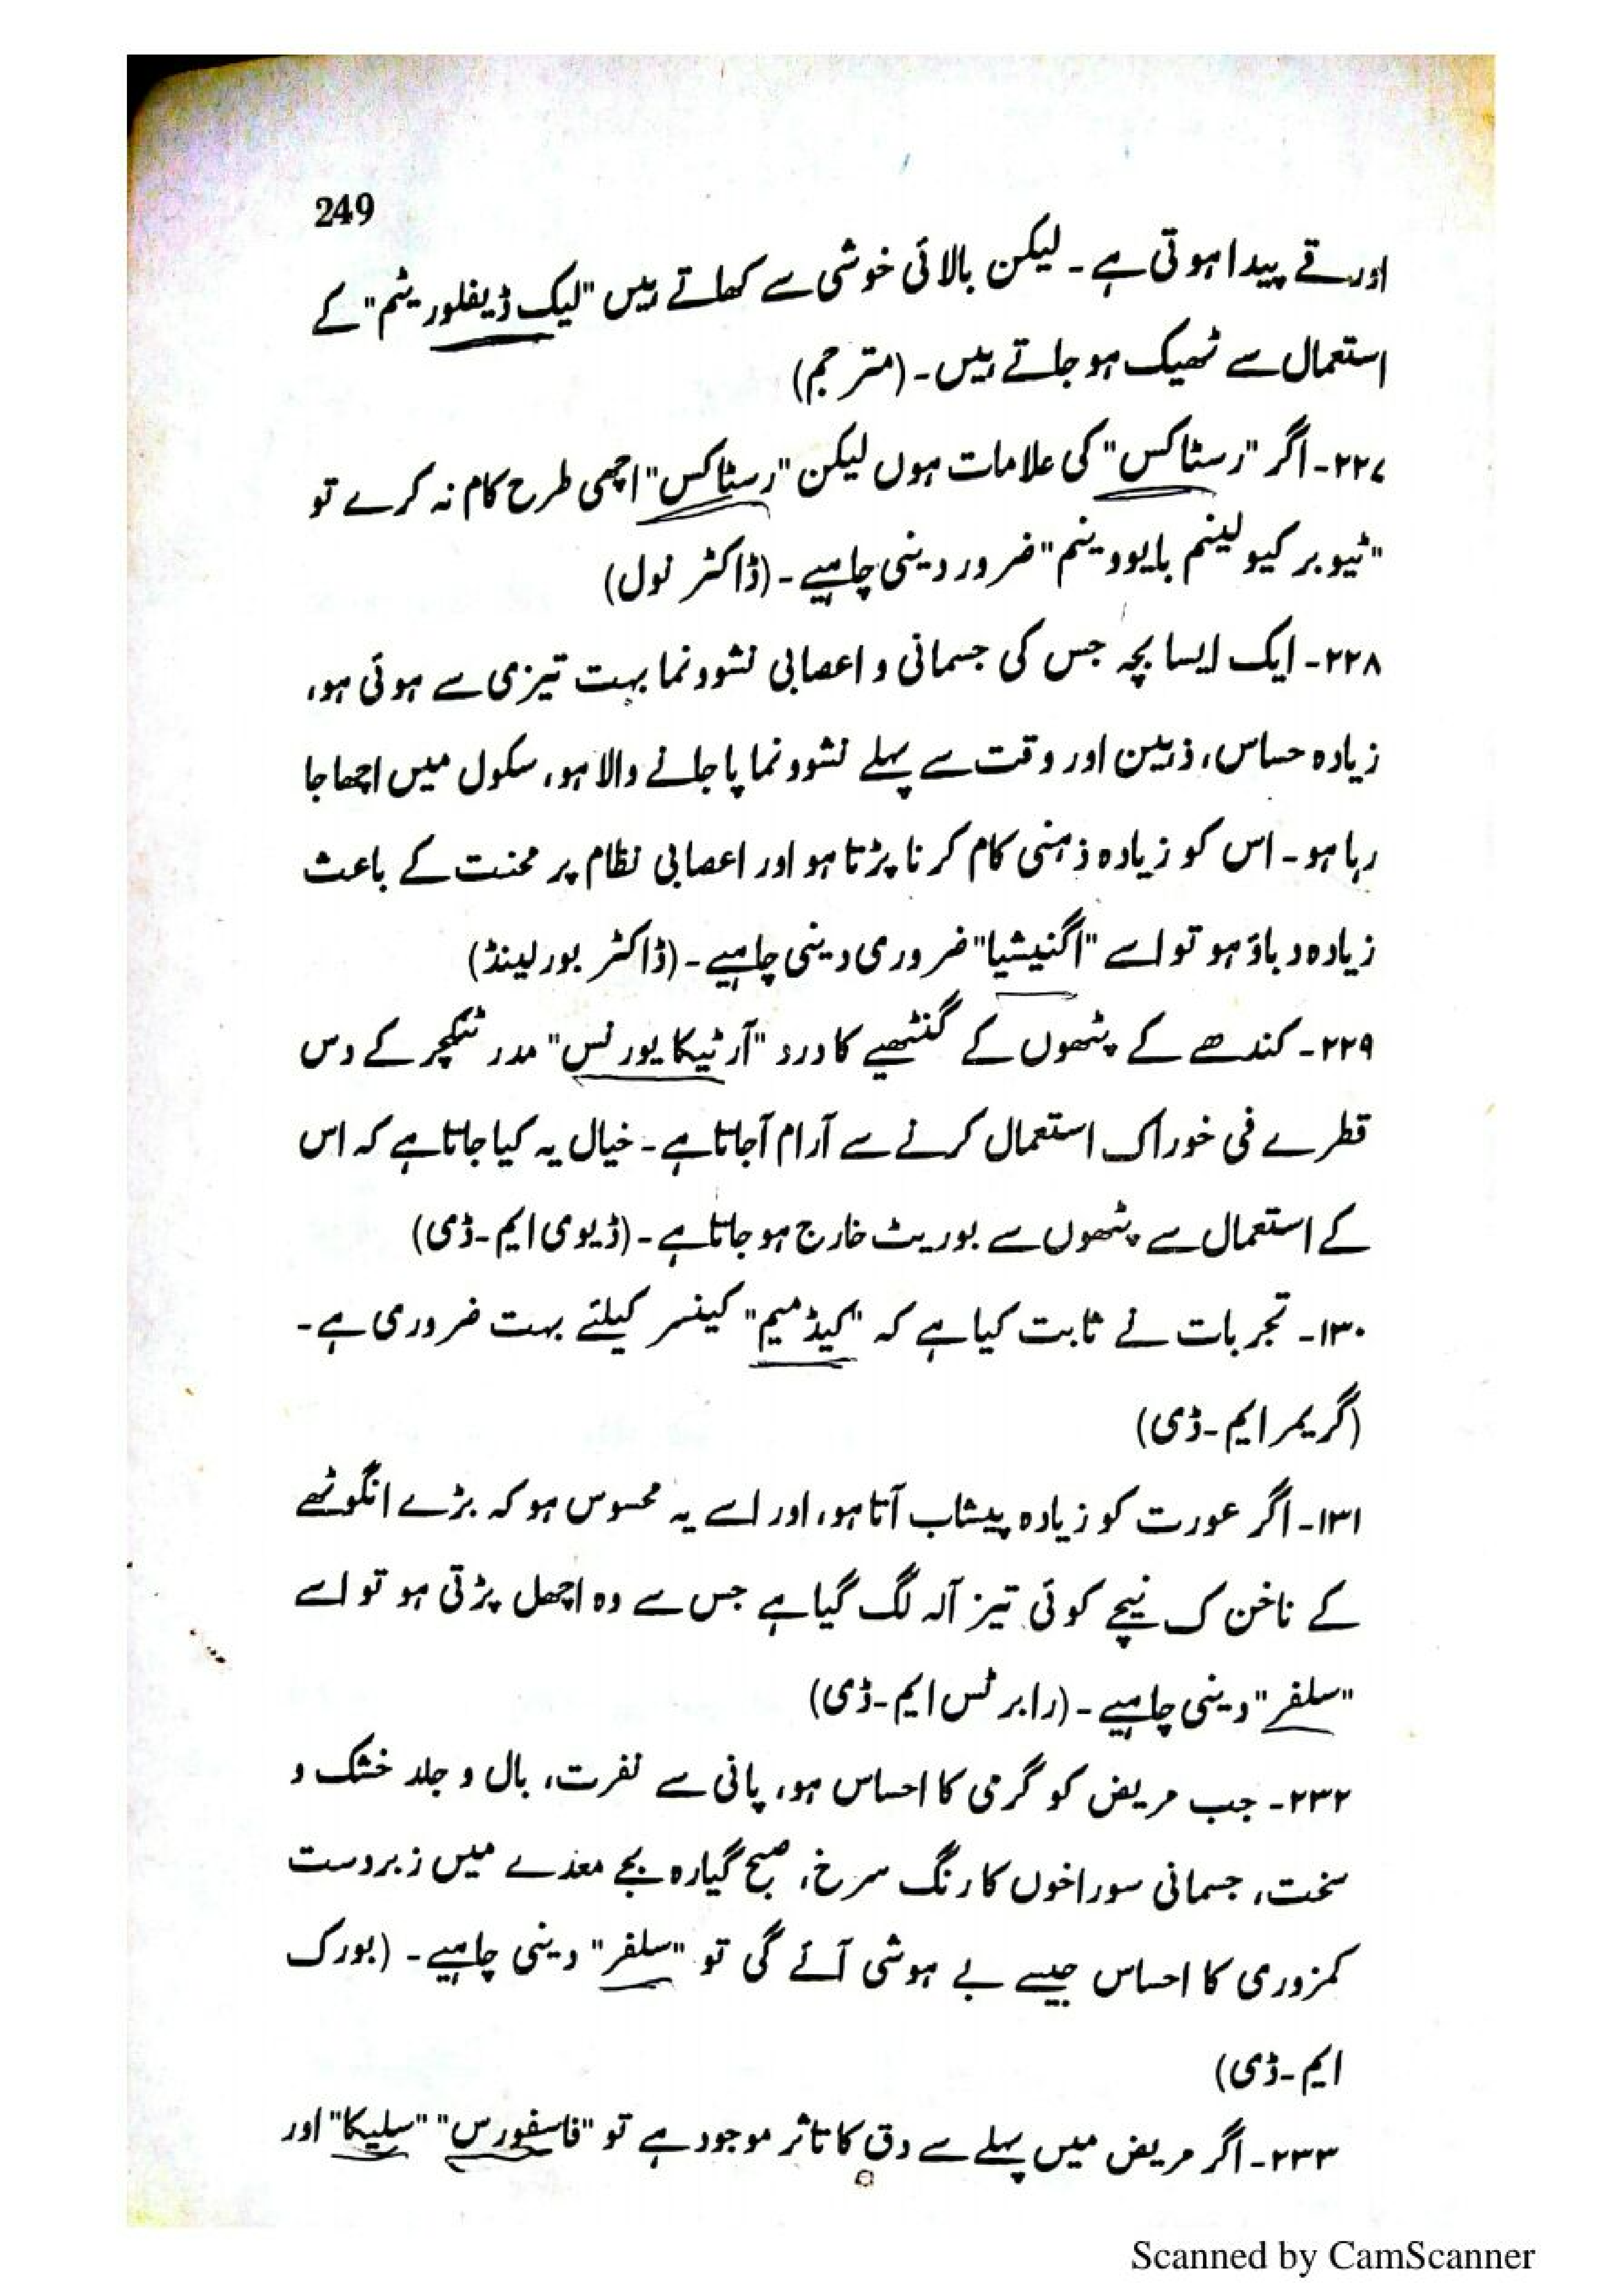 249
اور قے پیدا ہوتی ہے۔ لیکن بالائی خوشی سے کھاتے ہیں "لیک ڈیفلوریٹم" کے
استعمال سے ٹھیک ہو جاتے ہیں۔ (مترجم)
۲۲۷۔ اگر "رسٹاکس" کی علامات ہوں لیکن "رسٹاکس" اچھی طرح کام نہ کرے تو
"ٹیوبر کیولینم بایووینم" ضرور دینی چاہیے۔ (ڈاکٹر نول)
۲۲۸۔ ایک ایسا بچہ جس کی جسمانی و اعصابی نشوونما بہت تیزی سے ہوئی ہو،
زیادہ حساس، ذہین اور وقت سے پہلے نشوونما پا جانے والا ہو، سکول میں اچھا جا
رہا ہو۔ اس کو زیادہ ذہنی کام کرنا پڑتا ہو اور اعصابی نظام پر محنت کے باعث
زیادہ دباؤ ہو تو اسے "اگنیشیا" ضروری دینی چاہیے۔ (ڈاکٹر بورلینڈ)
۲۲۹۔ کندھے کے پٹھوں کے گنٹھیے کا درد "آرٹیکا یورنس" مدر ٹنکچر کے دس
قطرے فی خوراک استعمال کرنے سے آرام آجاتا ہے۔ خیال یہ کیا جاتا ہے کہ اس
کے استعمال سے پٹھوں سے یوریٹ خارج ہو جاتا ہے۔ (ڈیوی ایم۔ڈی)
۱۳۰۔ تجربات نے ثابت کیا ہے کہ "کیڈمیم" کینسر کیلئے بہت ضروری ہے۔
(گریمر ایم۔ڈی)
۱۳۱۔ اگر عورت کو زیادہ پیشاب آتا ہو، اور اسے یہ محسوس ہو کہ بڑے انگوٹھے
کے ناخن ک نیچے کوئی تیز آلہ لگ گیا ہے جس سے وہ اچھل پڑتی ہو تو اسے
"سلفر" دینی چاہیے۔ (رابرٹس ایم۔ڈی)
۲۳۲۔ جب مریض کو گرمی کا احساس ہو، پانی سے نفرت، بال و جلد خشک و
سخت، جسمانی سوراخوں کا رنگ سرخ، صبح گیارہ بجے معدے میں زبردست
کمزوری کا احساس جیسے بے ہوشی آئے گی تو "سلفر" دینی چاہیے۔ (بورک
ایم۔ڈی)
۲۳۳۔ اگر مریض میں پہلے سے دق کا تاثر موجود ہے تو "فاسفورس" "سلیکا" اور
Scanned by CamScanner